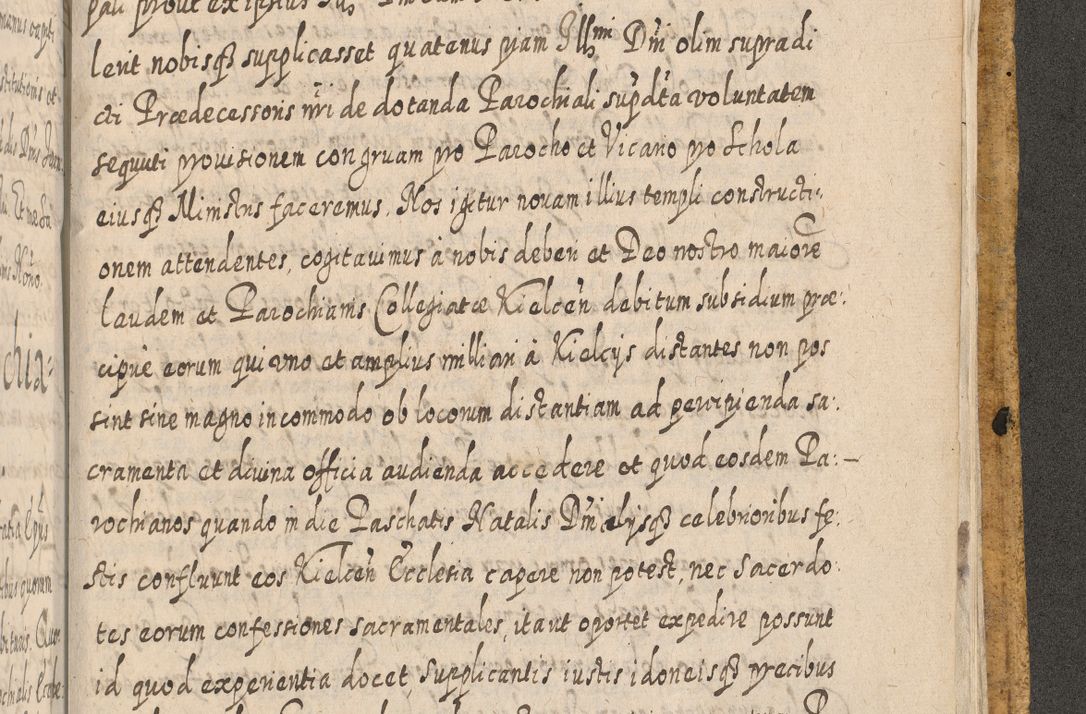 lerit nobisq̃ supplicasset quatenus piam Illmi Dni olim supradi
cti Prædecessoris nri de dotanda Parochiali supdta voluntatem
sequuti provisionem congruam pro Parocho et Vicario pro Schola
eiusq̃ Ministris faceremus. Nos igitur novam illius templi constructi-
onem attendentes, cogitavimus à nobis deberi et Deo nostro maiorẽ
laudem et Parochianis Collegiatæ Kielceñ debitum subsidium præ:
cipuè eorum qui uno et amplius milliari à Kielcijs distantes non pos
sint sine magno incommodo ob locorum distantiam ad percipienda sa:
cramenta et divina officia audienda accedere et quod eosdem Pa:
rochianos quando in die Paschatis Natalis Dni alijsq̃ celebrioribus fe:
stis confluunt eos Kielceñ Ecclesia capere non potest, nec Sacerdo
tes eorum confessiones sacramentales, ita ut oportet expedire possunt
id quod experientia docet, Supplicantis iustis idoneisq̃ precibus